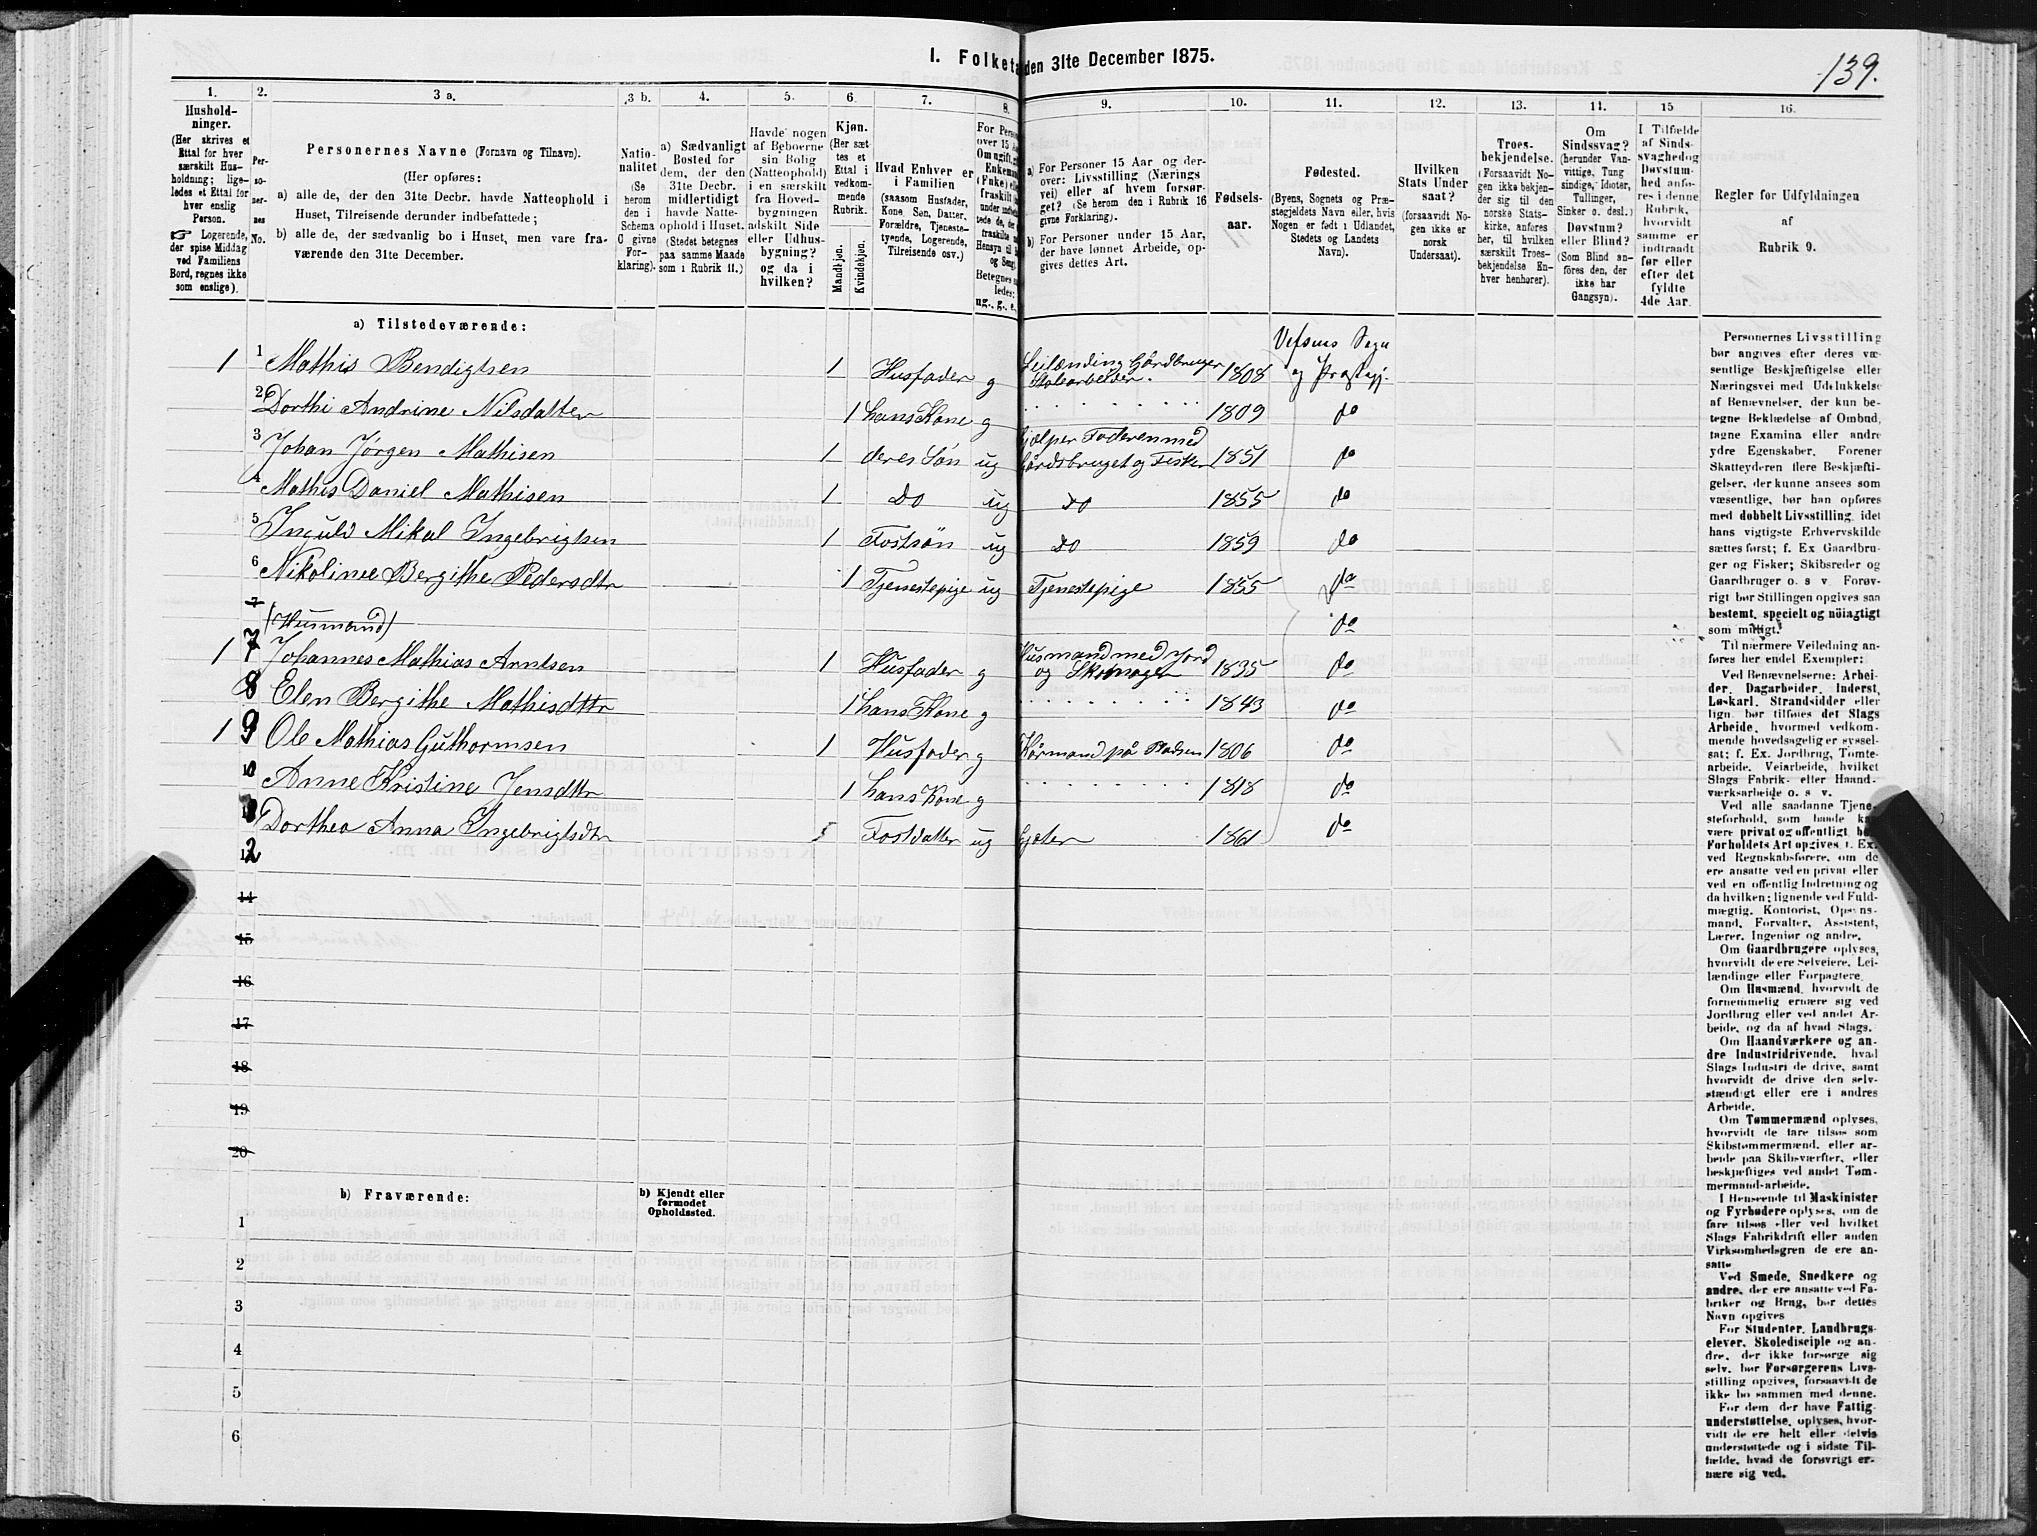 I. Folketa den 31te December 1875.
139.
1. 2. 3 a. 3 b. 4. 5. 6. 7. 8. 9. 10. 11. 12. 13. 14. 15 16.
Hushold-
ninger.
(Her skrives et
Ettal for hver
særskilt Hus-
holdning; lige-
ledes et Ettal for
hver enslig
Person.
Logerende,
der spise Middag
ved Familiens
Bord, regnes ikke
som enslige).
Per-
so-
ner-
nes
No.
Personernes Navne (Fornavn og Tilnavn).
(Her opføres:
a) alle de, der den 31te Decbr. havde Natteophold i
Huset, Tilreisende derunder indbefattede;
b) alle de, der sædvanlig bo i Huset, men vare fra-
værende den 31te December.
Natio-
nalitet
(Se
herom
den i
Schema
C givne
For-
klaring).
a) Sædvanligt
Bosted for
dem, der den
31te Decbr.
midlertidigt
havde Natte-
ophold i Huset.
(Stedet betegnes
paa samme Maade
som i Rubrik 11.)
Havde nogen
af Beboerne
sin Bolig
(Natteophold)
i en særskilt
fra Hoved-
bygningen
adskilt Side
eller Udhus-
bygning?
og da i
hvilken?
Kjøn.
(Her sæt-
tes et
Ettal i
vedkom-
mende
Rubrik.
Mandkjøn.
Kvindekjøn.
Hvad Enhver er
i Familien
(saasom Husfader,
Kone, Søn, Datter,
Forældre, Tjeneste-
tyende, Logerende,
Tilreisende osv.)
a) For Personer 15 Aar og der-
over: Livsstilling (Nærings
vei) eller af hvem forsør-
get? (Se herom den i Rubrik 16
givne Forklaring).
b) For Personer under 15 Aar,
der have lønnet Arbeide, op-
gives dettes Art.
Fødsels-
aar.
Fødested.
(Byens, Sognets og Præ-
stegjeldets Navn eller, hvis
Nogen er født i Udlandet,
Stedets og Landets
Navn).
Hvilken
Stats Under
saat?
(forsaavidt No-
gen ikke er
norsk
Undersaat).
Troes-
bekjendelse.
(Forsaavidt No-
gen ikke bekjen-
der sig til den
norske Stats-
kirke, anføres
her, til hvilken
særskilt Troes-
bekjendelse En-
hver henhører).
Om
Sindssvag?
(herunder Van-
vittige, Tung
sindige, Idioter,
Tullinger,
Sinker o. desl.)
Døvstum?
eller Blind?
(Som Blind an-
føres den, der
ikke har
Gangsyn).
I Tilfælde
af Sinds-
svaghed og
Døvstum-
hed anfø-
res i denne
Rubrik,
hvorvidt
samme er
indtraadt
før eller
efter det
fyldte
4de Aar.
Regler for Udfyldningen
af
Rubrik 9.
a) Tilstedeværende:
1 1 Mathis Bendigtsen 1 Husfader g Leilænding Gårdbruger 1808 Vefsens Sogn og Præstegj.
2 Dorthi Andrine Nilsdatter 1 hans Kone g 1809 do
3 Johan Jørgen Mathisen 1 deres Søn ug Hjælper Faderen med Gårdsbruget og Fisker 1851 do
4 Mathis Daniel Mathisen 1 Do ug Do 1855 do
5 Inguld Mikal Ingebrigtsen 1 Fostsøn ug Do 1859 do
6 Nikolinee Bergithe Pedersdtr 1 Tjenestepige ug Tjenestepige 1855 do
(Husmand) do
1 7 Johannes Mathias Arntsen 1 Husfader g Husmand med Jord og Skomager 1835 do
8 Elen Bergithe Mathisdttr 1 hans Kone g 1843 do
1 9 Ole Mathias Guthormsen 1 Husfader g Kårmand på Pladsen 1806 do 1
10 Anne Kristine Jensdttr 1 hans Kone g 1818 do
Dorthea Anna Ingebrigtsdtr Fostdatter ug Gjeter 1861 do
12
14
15
16
17
18
19
20
b) Fraværende:
b) Kjendt eller
formodet
Opholdssted.
1
2
3
4
5
6
Personernes Livsstilling
bør angives efter deres væ-
sentlige Beskjæftigelse eller
Næringsvei med Udelukkelse
af Benævnelser, der kun be-
tegne Beklædelse af Ombud,
tagne Examina eller andre
ydre Egenskaber. Forener
Skatteyderen flere Beskjæfti-
gelser, der kunne ansees som
væsentlige, bør han opføres
med dobbelt Livsstilling, idet
hans vigtigste Erhvervskilde
sættes først; f. Ex Gaardbru-
ger og Fisker; Skibsreder og
Gaardbruger o. s v. Forøv-
rigt bør Stillingen opgives saa
bestemt, specielt og nöiagtigt
som muligt.
Til nærmere Veiledning an-
føres her endel Exempler:
Ved Benævnelserne: Arbei-
der, Dagarbeider, Inderst,
Løskarl, Strandsidder eller
lign. bør tilføies det Slags
Arbeide, hvormed vedkom-
mende hovedsagelig er syssel-
sat; f. Ex. Jordbrug, Tomte-
arbeide, Veiarbeide, hvilket
Slags Fabrik- eller Haand-
værksarbeide o. s v.
Ved alle saadanne Tjene-
steforhold, som baade kan
være privat og offentligt, bør
Forholdets Art opgives, t. Ex.
ved Regnskabsførere, om de
ere ansatte ved en privat eller
ved en offentlig Indretning og
da hvilken; lignende ved Fuld-
mægtig, Kontorist, Opsyns-
mand, Forvalter, Assistent,
Lærer, Ingeniør og andre.
Om Gaardbrugere oplyses,
hvorvidt de ere Selveiere, Lei-
lændinge eller Forpagtere.
Om Husmænd, hvorvidt de
fornemmelig ernære sig ved
Jordbrug eller ved andet Ar-
beide, og da af hvad Slags.
Om Haandværkere og an-
dre Industridrivende, hvad
Slags Industri de drive, samt
hvorvidt de drive den selv-
stændigt eller ere i andres
Arbeide.
Om Tømmermænd oplyses,
hvorvidt de fare tilsøs som
Skibstømmermænd, eller ar-
beide paa Skibsværfter, eller
beskjæftiges ved andet Tøm-
mermand-arbeide.
I Henseende til Maskinister
og Fyrbødere oplyses, om de
fare tilsøs eller ved hvilket
Slags Fabrikdrift eller anden
Virksomhedsgren de ere an-
satte
Ved Smede, Snedkere og
andre, der ere ansatte ved Fa-
briker og Brug, bør dettes
Navn opgives
For Studenter, Landbrugs-
elever, Skoledisciple og an-
dre, der ikke forsørge sig
selv, bør Forsørgerens Livs-
stilling opgives, forsaavidt de
ikke bo sammen med denne.
For dem der have Fattig-
understøttelse, oplyses, hvor-
vidt de ere helt eller delvis
understøttede og i sidste Til-
fælde, hvad de forøvrigt er-
nære sig ved.